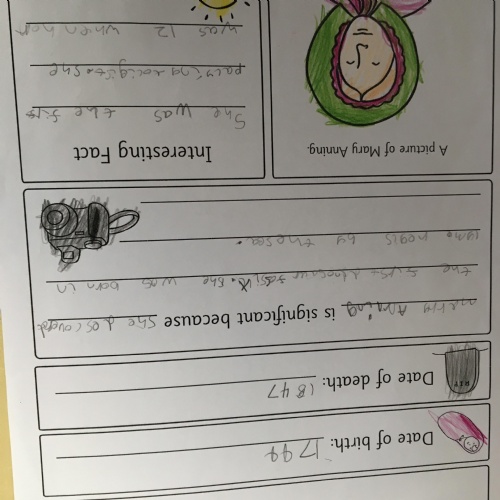 Date of birth: 1799
Date of death: 1847
RIP
Anning is significant because she
the first dinosaur she was born in
by the sea.
A picture of Mary Anning.
Interesting Fact
She was the
she
was 12 when her